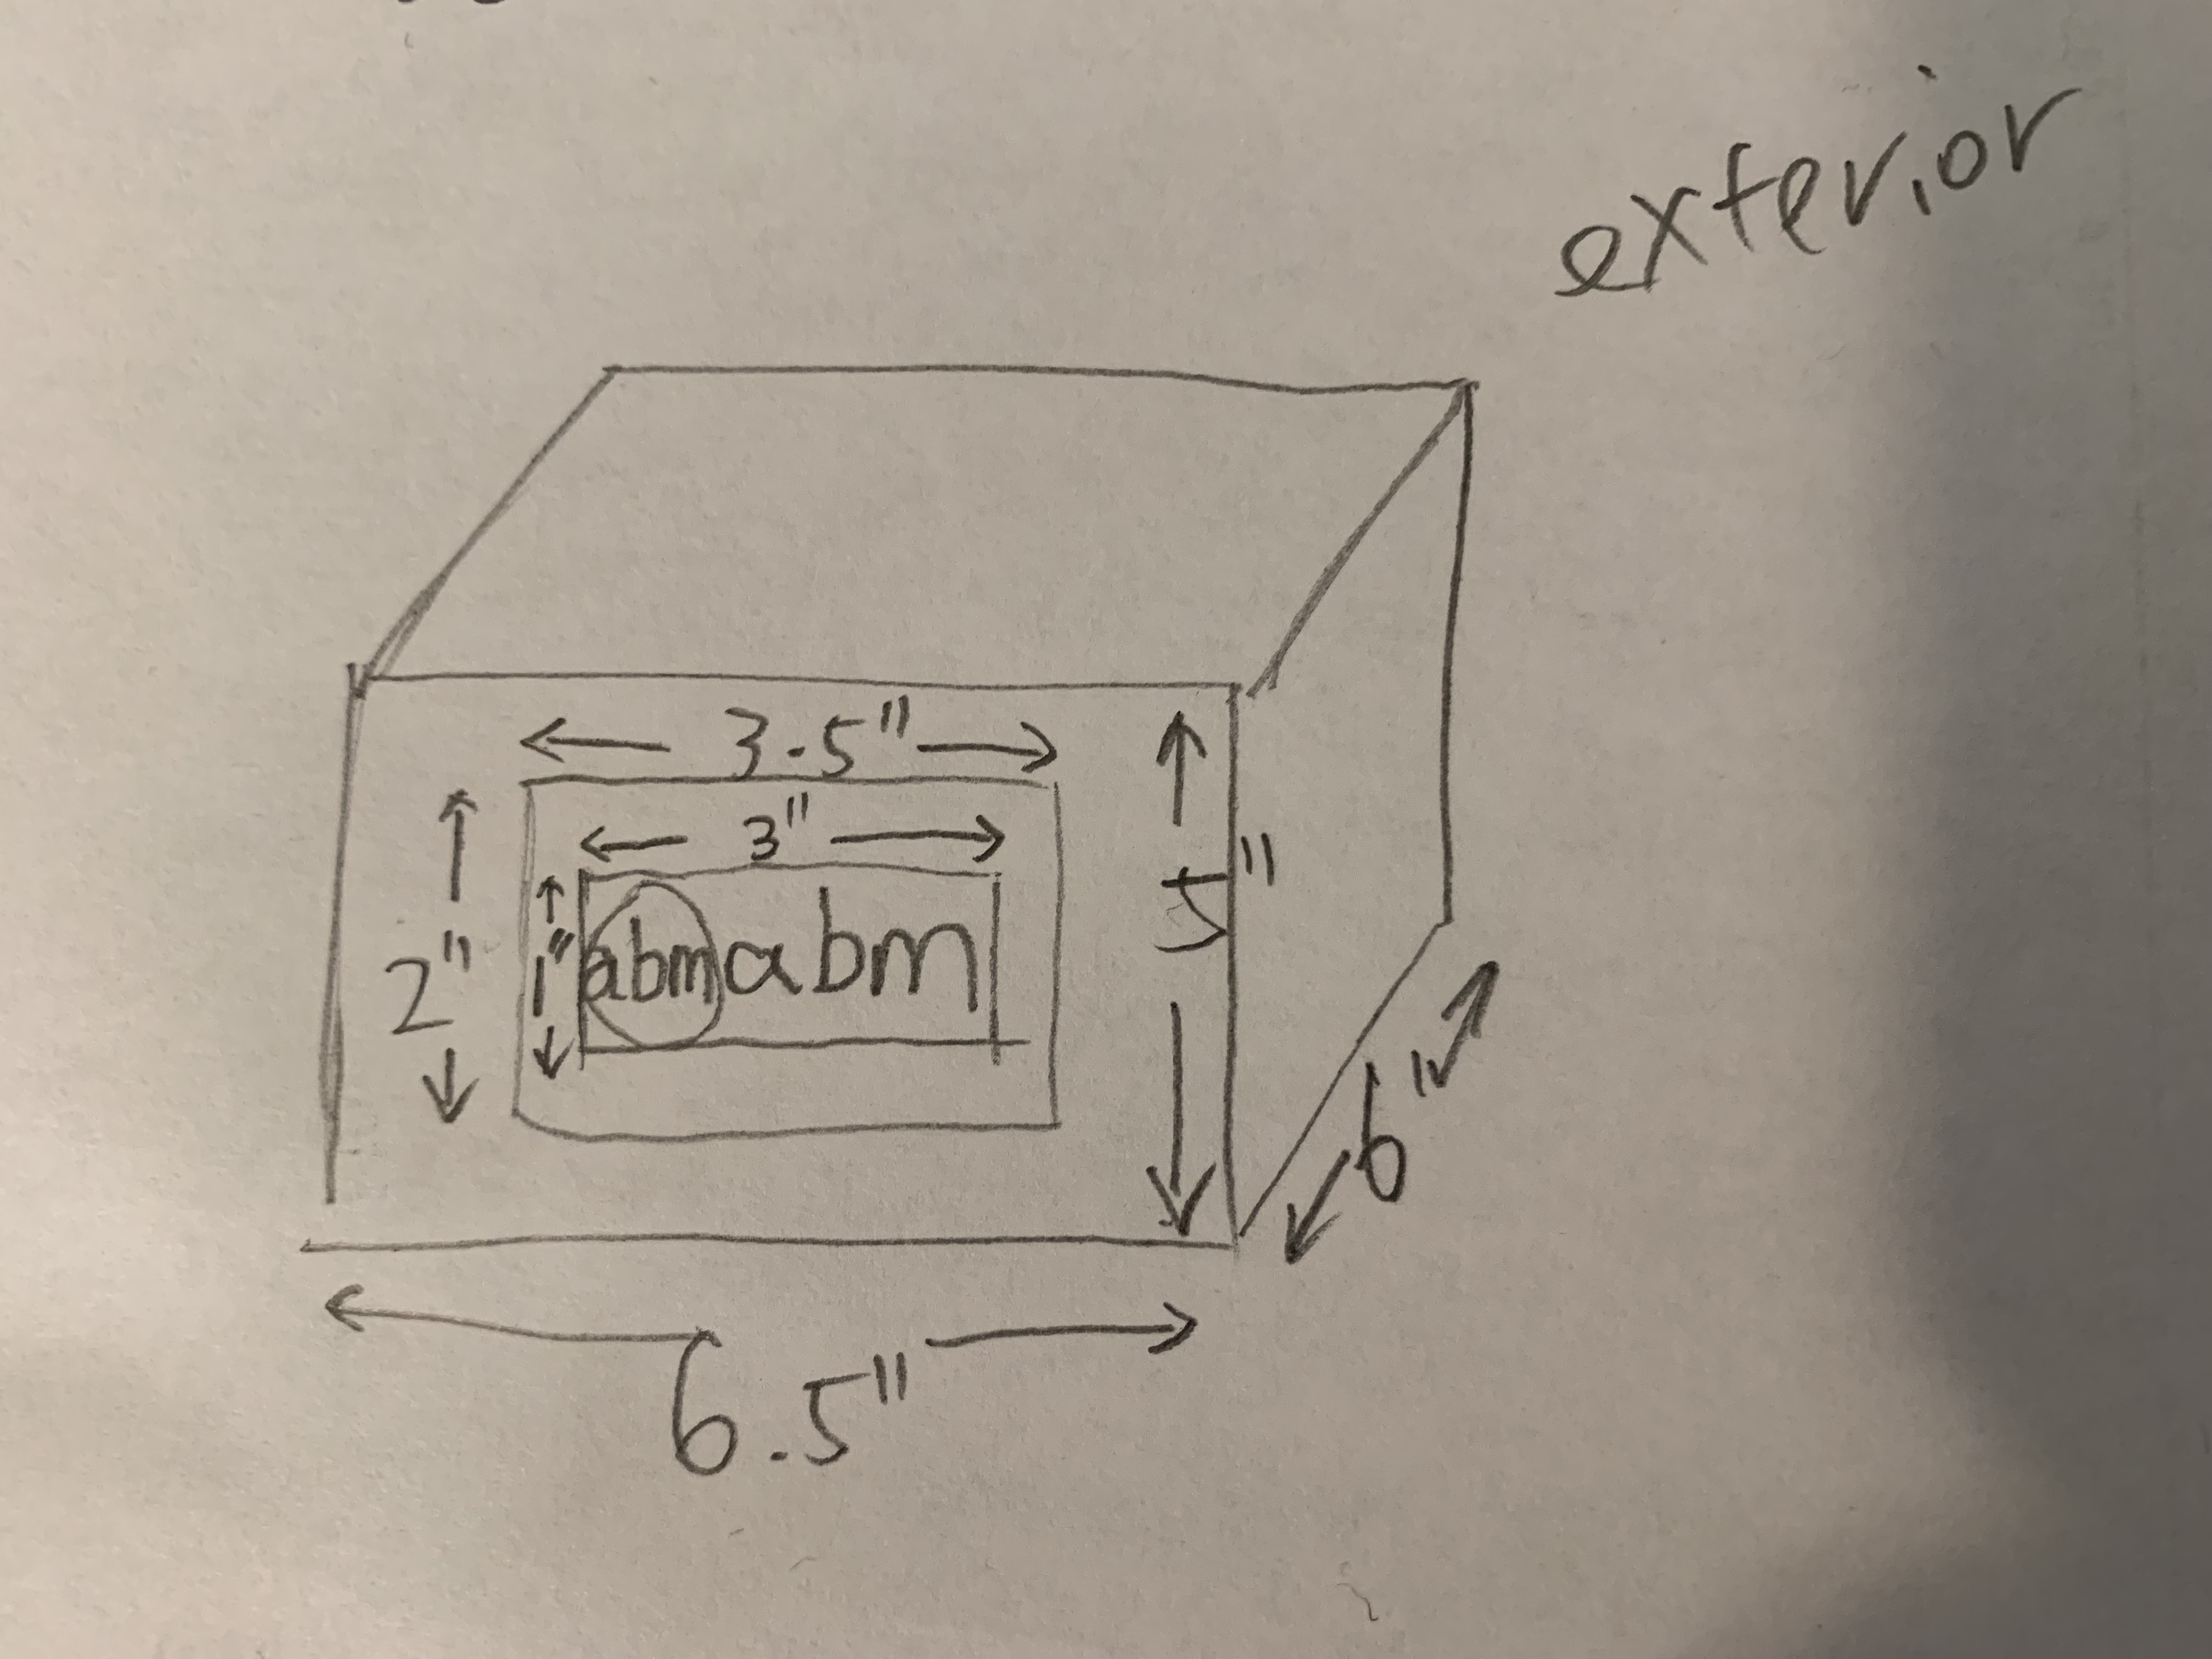 exterior
3.5"
3"
2"
1"
abm abm
5"
6"
6.5"